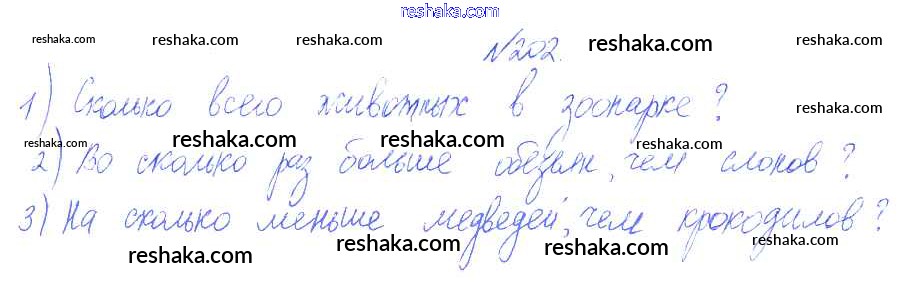 reshaka.com
reshaka.com reshaka.com reshaka.com reshaka.com reshaka.com
№202.
1) Сколько всего животных в зоопарке?
reshaka.com
reshaka.com reshaka.com reshaka.com reshaka.com
2) Во сколько раз больше обезьян, чем слонов?
3) На сколько меньше медведей, чем крокодилов?
reshaka.com reshaka.com reshaka.com reshaka.com